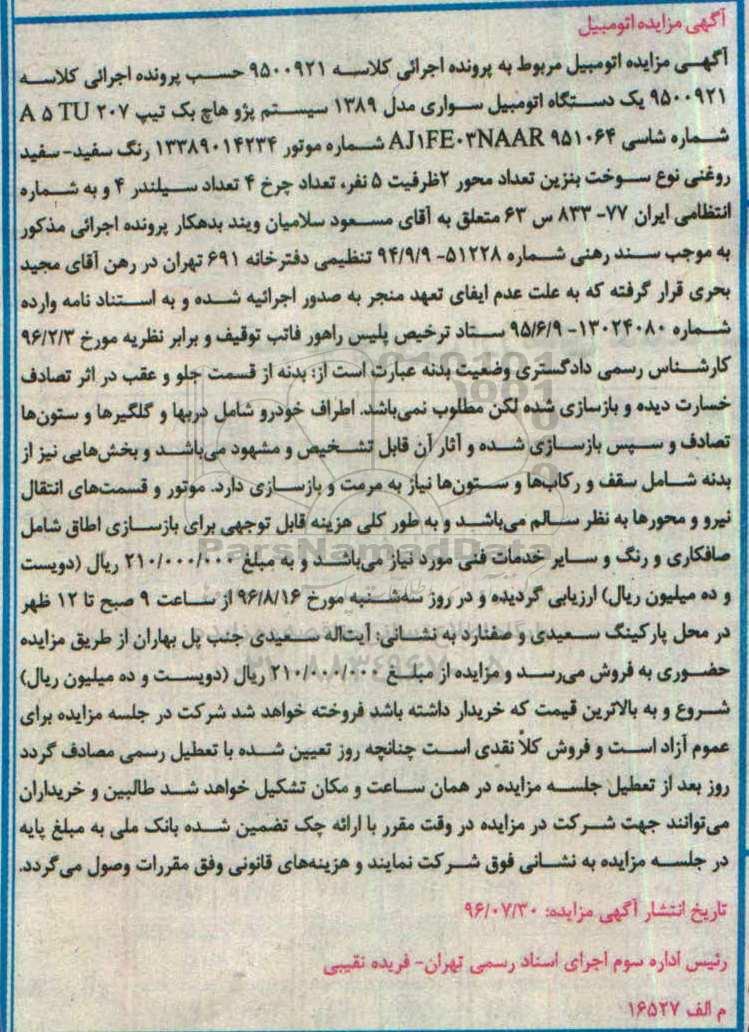 آگهی مزایده اتومبیل
آگهی مزایده اتومبیل مربوط به پرونده اجرائی کلاسه ۹۵۰۰۹۲۱ حسب پرونده اجرائی کلاسه
۹۵۰۰۹۲۱ یک دستگاه اتومبیل سواری مدل ۱۳۸۹ سیستم پژو هاچ بک تیپ ۲۰۷ A ۵ TU
شماره شاسی ۹۵۱۰۶۴ AJ۱FE۰۳NAAR شماره موتور ۱۳۳۸۹۰۱۴۲۳۴ رنگ سفید- سفید
روغنی نوع سوخت بنزین تعداد محور ۲ظرفیت ۵ نفر، تعداد چرخ ۴ تعداد سیلندر ۴ و به شماره
انتظامی ایران ۷۷- ۸۳۳ س ۶۳ متعلق به آقای مسعود سلامیان ویند بدهکار پرونده اجرائی مذکور
به موجب سند رهنی شماره ۵۱۲۲۸- ۹۴/۹/۹ تنظیمی دفترخانه ۶۹۱ تهران در رهن آقای مجید
بحری قرار گرفته که به علت عدم ایفای تعهد منجر به صدور اجرائیه شده و به استناد نامه وارده
شماره ۱۳۰۲۴۰۸۰- ۹۵/۶/۹ ستاد ترخیص پلیس راهور فاتب توقیف و برابر نظریه مورخ ۹۶/۲/۳
کارشناس رسمی دادگستری وضعیت بدنه عبارت است از: بدنه از قسمت جلو و عقب در اثر تصادف
خسارت دیده و بازسازی شده لکن مطلوب نمی‌باشد. اطراف خودرو شامل دربها و گلگیرها و ستون‌ها
تصادف و سپس بازسازی شده و آثار آن قابل تشخیص و مشهود می‌باشد و بخش‌هایی نیز از
بدنه شامل سقف و رکاب‌ها و ستون‌ها نیاز به مرمت و بازسازی دارد. موتور و قسمت‌های انتقال
نیرو و محورها به نظر سالم می‌باشد و به طور کلی هزینه قابل توجهی برای بازسازی اطاق شامل
صافکاری و رنگ و سایر خدمات فنی مورد نیاز می‌باشد و به مبلغ ۲۱۰/۰۰۰/۰۰۰ ریال (دویست
و ده میلیون ریال) ارزیابی گردیده و در روز سه‌شنبه مورخ ۹۶/۸/۱۶ از ساعت ۹ صبح تا ۱۲ ظهر
در محل پارکینگ سعیدی و صفنارد به نشانی: آیت‌اله سعیدی جنب پل بهاران از طریق مزایده
حضوری به فروش می‌رسد و مزایده از مبلغ ۲۱۰/۰۰۰/۰۰۰ ریال (دویست و ده میلیون ریال)
شروع و به بالاترین قیمت که خریدار داشته باشد فروخته خواهد شد شرکت در جلسه مزایده برای
عموم آزاد است و فروش کلاً نقدی است چنانچه روز تعیین شده با تعطیل رسمی مصادف گردد
روز بعد از تعطیل جلسه مزایده در همان ساعت و مکان تشکیل خواهد شد طالبین و خریداران
می‌توانند جهت شرکت در مزایده در وقت مقرر با ارائه چک تضمین شده بانک ملی به مبلغ پایه
در جلسه مزایده به نشانی فوق شرکت نمایند و هزینه‌های قانونی وفق مقررات وصول می‌گردد.
تاریخ انتشار آگهی مزایده: ۹۶/۰۷/۳۰
رئیس اداره سوم اجرای اسناد رسمی تهران- فریده نقیبی
م الف ۱۶۵۲۷
ParsNamadData